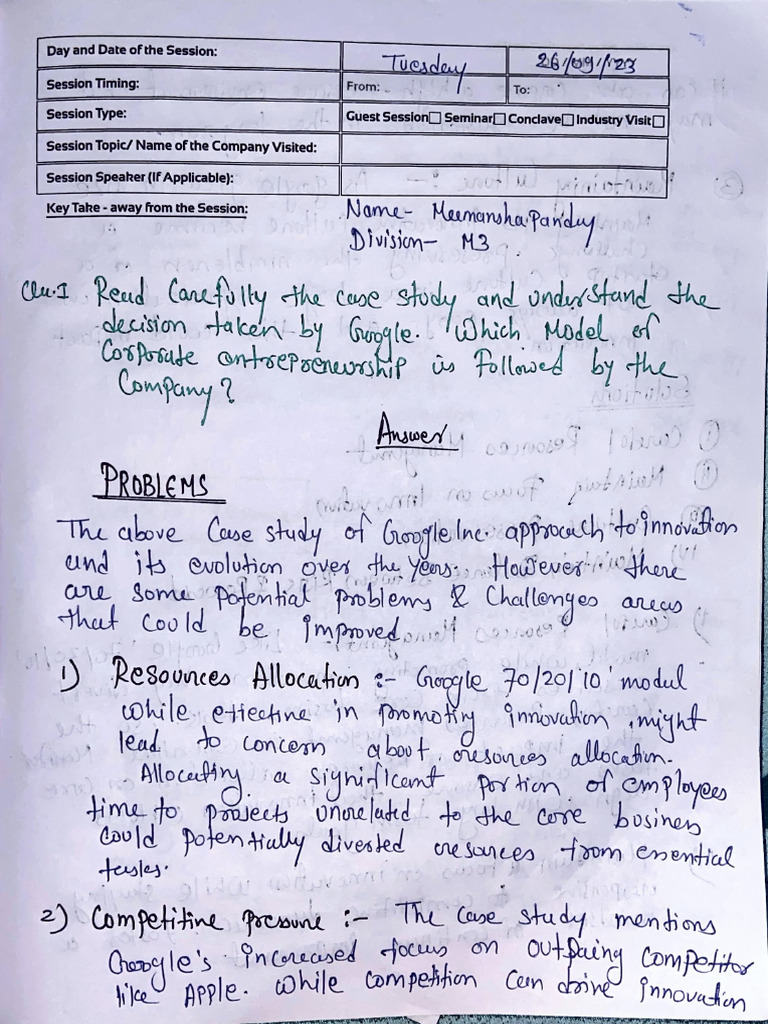 Day and Date of the Session: Tuesday 26/09/23
Session Timing: From: To:
Session Type: Guest Session☐ Seminar☐ Conclave☐ Industry Visit☐
Session Topic/ Name of the Company Visited:
Session Speaker (If Applicable):
Key Take - away from the Session: Name- Meemansha Pandey
Division- M3
Qu.1 Read Carefully the case study and understand the
decision taken by Google. Which Model of
Corporate entrepreneurship is followed by the
Company?
Answer
PROBLEMS
The above Case study of Google Inc. approach to innovation
and its evolution over the years. However there
are some potential problems & Challenges areas
that could be improved.
1) Resources Allocation :- Google 70/20/10 modul
while effective in promoting innovation, might
lead to concern about resources allocation.
Allocating a significant portion of employees
time to projects unrelated to the core business
could potentially diverted resources from essential
tasks.
2) Competitive pressure :- The case study mentions
Google's increased focus on outpaing competitor
like Apple. While competition can drive innovation